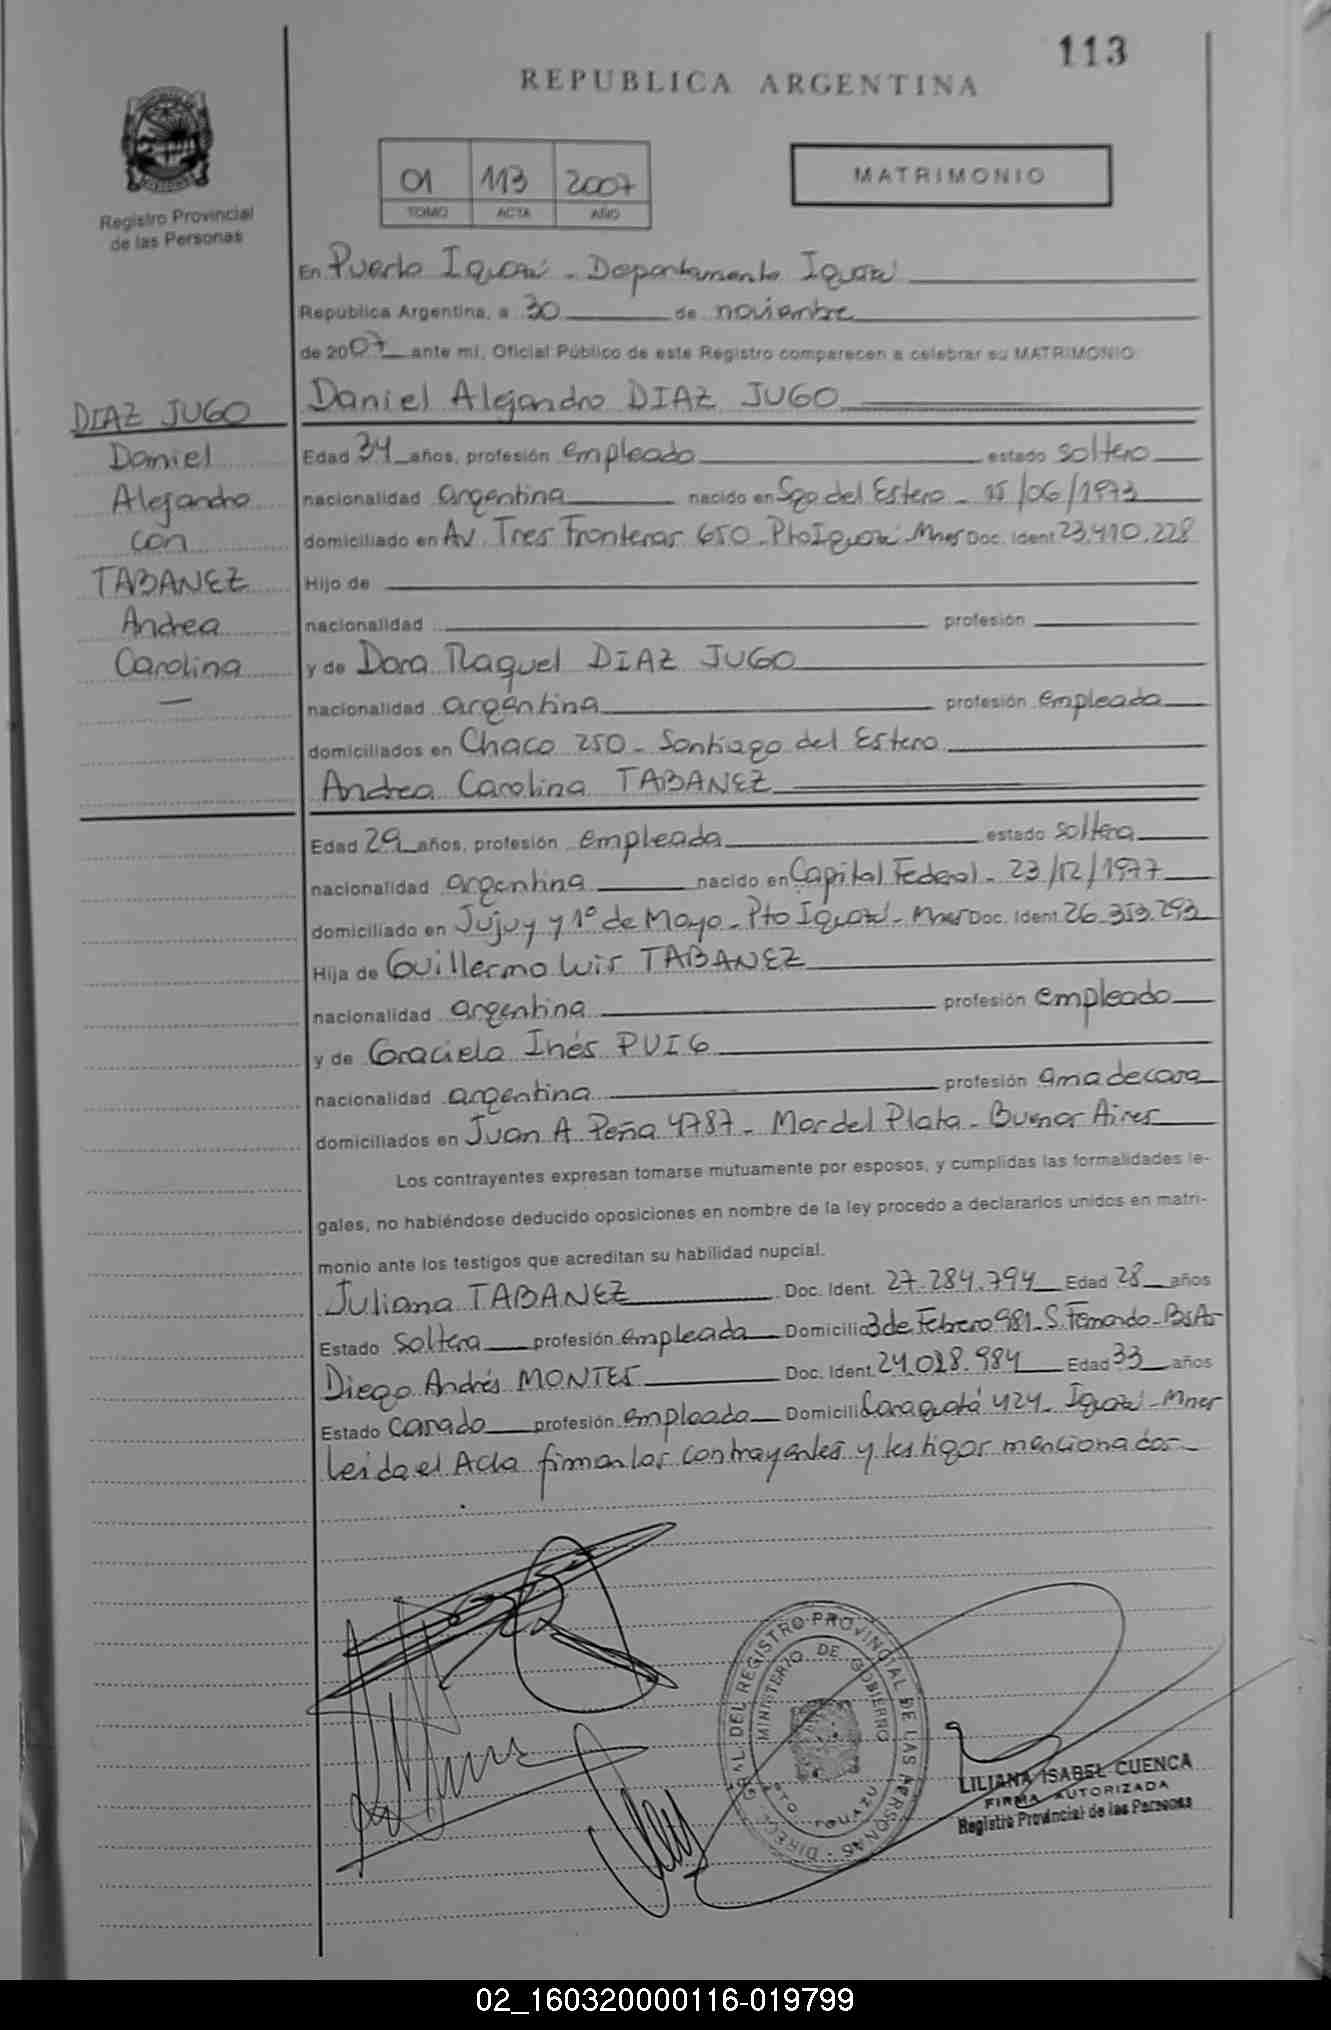 113
REPUBLICA ARGENTINA
01 113 2007
TOMO ACTA AÑO
MATRIMONIO
Registro Provincial
de las Personas
En Puerto Iguazú - Departamento Iguazú
República Argentina, a 30 de noviembre
de 2007 ante mí, Oficial Público de este Registro comparecen a celebrar su MATRIMONIO:
DIAZ JUGO
Daniel
Alejandro
con
TABANEZ
Andrea
Carolina
Daniel Alejandro DIAZ JUGO
Edad 34 años, profesión empleado estado soltero
nacionalidad argentina nacido en Sgo del Estero - 15/06/1973
domiciliado en Av. Tres Fronteras 650 - Pto Iguazú Mnes Doc. Ident 23.410.228
Hijo de
nacionalidad profesión
y de Dora Raquel DIAZ JUGO
nacionalidad argentina profesión empleada
domiciliados en Chaco 250 - Santiago del Estero
Andrea Carolina TABANEZ
Edad 29 años, profesión empleada estado soltera
nacionalidad argentina nacido en Capital Federal - 23/12/1977
domiciliado en Jujuy y 1º de Mayo - Pto Iguazú - Mnes Doc. Ident. 26.353.293
Hija de Guillermo Luis TABANEZ
nacionalidad argentina profesión empleado
y de Graciela Inés PUIG
nacionalidad argentina profesión ama de casa
domiciliados en Juan A Peña 4787 - Mar del Plata - Buenos Aires
Los contrayentes expresan tomarse mutuamente por esposos, y cumplidas las formalidades le-
gales, no habiéndose deducido oposiciones en nombre de la ley procedo a declararlos unidos en matri-
monio ante los testigos que acreditan su habilidad nupcial.
Juliana TABANEZ Doc. Ident. 27.284.794 Edad 28 años
Estado soltera profesión empleada Domicilio 3 de Febrero 981 - S. Fernando - Bs As
Diego Andrés MONTES Doc. Ident. 24.028.984 Edad 33 años
Estado casado profesión empleado Domicilio Caraguatá 424 - Iguazú - Mnes
Leída el Acta firman los contrayentes y testigos mencionados
DIRECC. GRAL. DEL REGISTRO PROVINCIAL DE LAS PERSONAS
MINISTERIO DE GOBIERNO
PTO. IGUAZU
LILIANA ISABEL CUENCA
FIRMA AUTORIZADA
Registro Provincial de las Personas
02_160320000116-019799